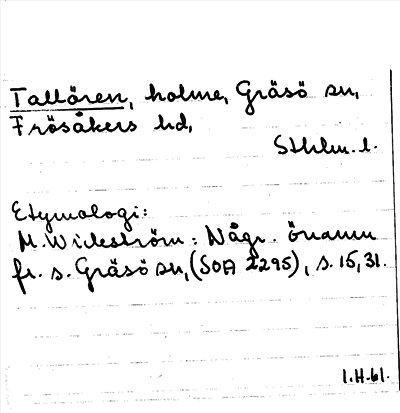 Tallören, holme, Gräsö sn,
Frösåkers hd,
Sthlm. l.
Etymologi:
M. Wideström: Någr. önamn
fr. s. Gräsö sn, (SOA 2295), s. 15, 31.
1.H.61.